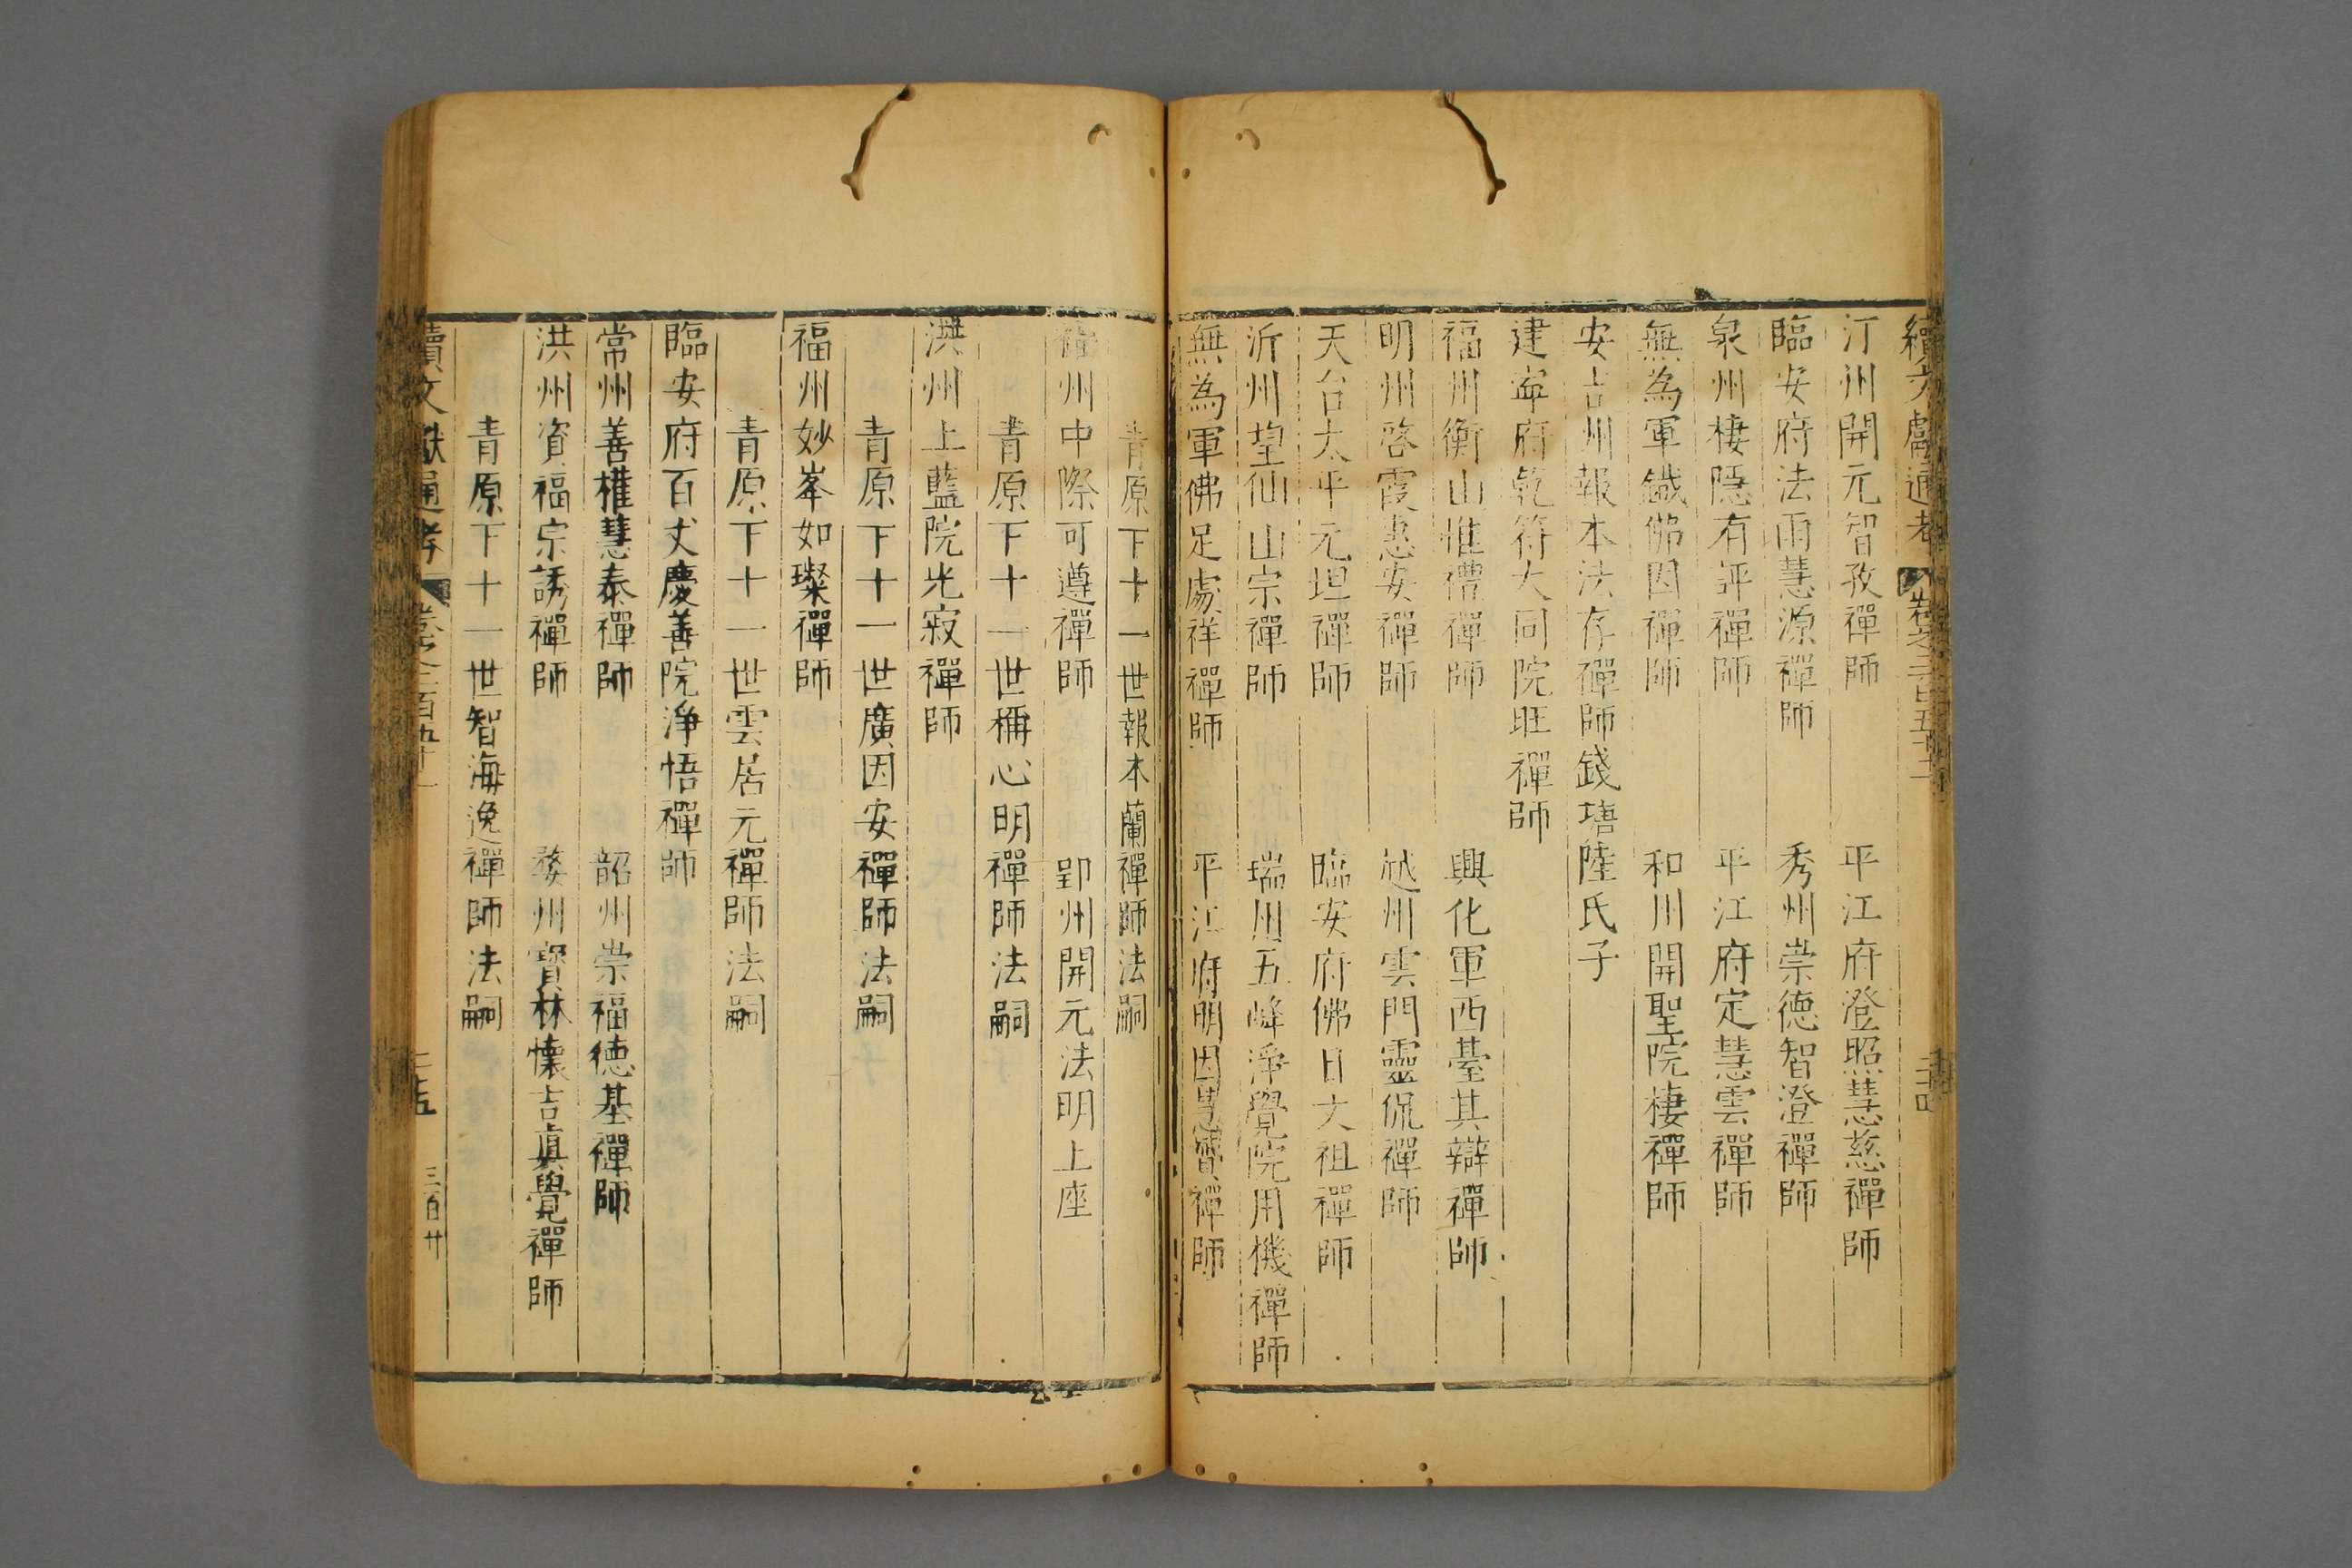 續文獻通考 卷之二百五十一 二十四
汀州開元智孜禪師 平江府澄照慧慈禪師
臨安府法雨慧源禪師 秀州崇德智澄禪師
泉州棲隱有評禪師 平江府定慧雲禪師
無為軍鐵佛因禪師 和州開聖院棲禪師
安吉州報本法存禪師錢塘陸氏子
建寧府乾符大同院旺禪師
福州衡山惟禮禪師 興化軍西臺其辯禪師
明州啓霞惠安禪師 越州雲門靈侃禪師
天台太平元坦禪師 臨安府佛日文祖禪師
沂州望仙山宗禪師 瑞州五峰淨覺院用機禪師
無為軍佛足處祥禪師 平江府明因慧贇禪師
青原下十一世報本蘭禪師法嗣
福州中際可遵禪師 郢州開元法明上座
青原下十一世稱心明禪師法嗣
洪州上藍院光寂禪師
青原下十一世廣因安禪師法嗣
福州妙峯如璨禪師
青原下十一世雲居元禪師法嗣
臨安府百丈慶善院淨悟禪師
常州善權慧泰禪師 韶州崇福德基禪師
洪州資福宗誘禪師 婺州寶林懷吉真覺禪師
青原下十一世智海逸禪師法嗣
續文獻通考 卷之二百五十一 二十五 三百廿